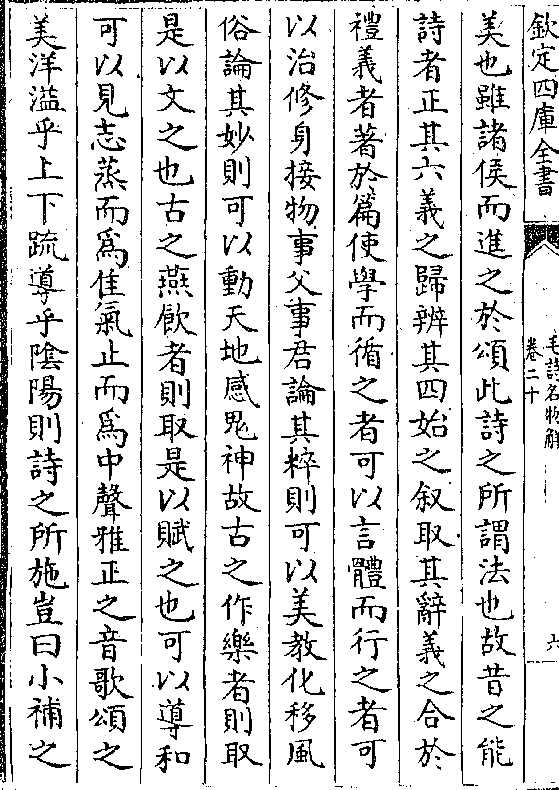 欽定四庫全書
毛詩名物解
卷二十
六
美也雖諸侯而進之於頌此詩之所謂法也故昔之能
詩者正其六義之歸辨其四始之叙取其辭義之合於
禮義者著於篇使學而循之者可以言體而行之者可
以治修身接物事父事君論其粹則可以美教化移風
俗論其妙則可以動天地感鬼神故古之作樂者則取
是以文之也古之燕飲者則取是以賦之也可以導和
可以見志蒸而爲佳氣止而爲中聲雅正之音歌頌之
美洋溢乎上下䟽導乎陰陽則詩之所施豈曰小補之